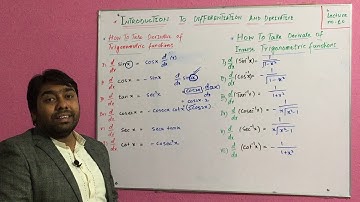 • INTRODUCTION TO DIFFERENTIATION AND DERIVATIVE
Lecture
no. 20
• How To Take Derivative of
Trigonometric functions
i) d/dx sin(x) = cosx d/dx (x)
ii) d/dx cosx = - sinx d/dx sinx
iii) d/dx tanx = sec²x
iv) d/dx cosecx = - cosecx cotx
v) d/dx secx = secx tanx
vi) d/dx cotx = - cosec²x
• How To Take Derivate of
Inverse Trigonometric functions
d/dx (Sin⁻¹x) = 1/√1-x²
d/dx (Cos⁻¹x) = -1/√1-x²
d/dx (Tan⁻¹x) = 1/1+x²
d/dx (Cosec⁻¹x) = -1/x√x²-1
d/dx (Sec⁻¹x) = 1/x√x²-1
d/dx (Cot⁻¹x) = -1/1+x²